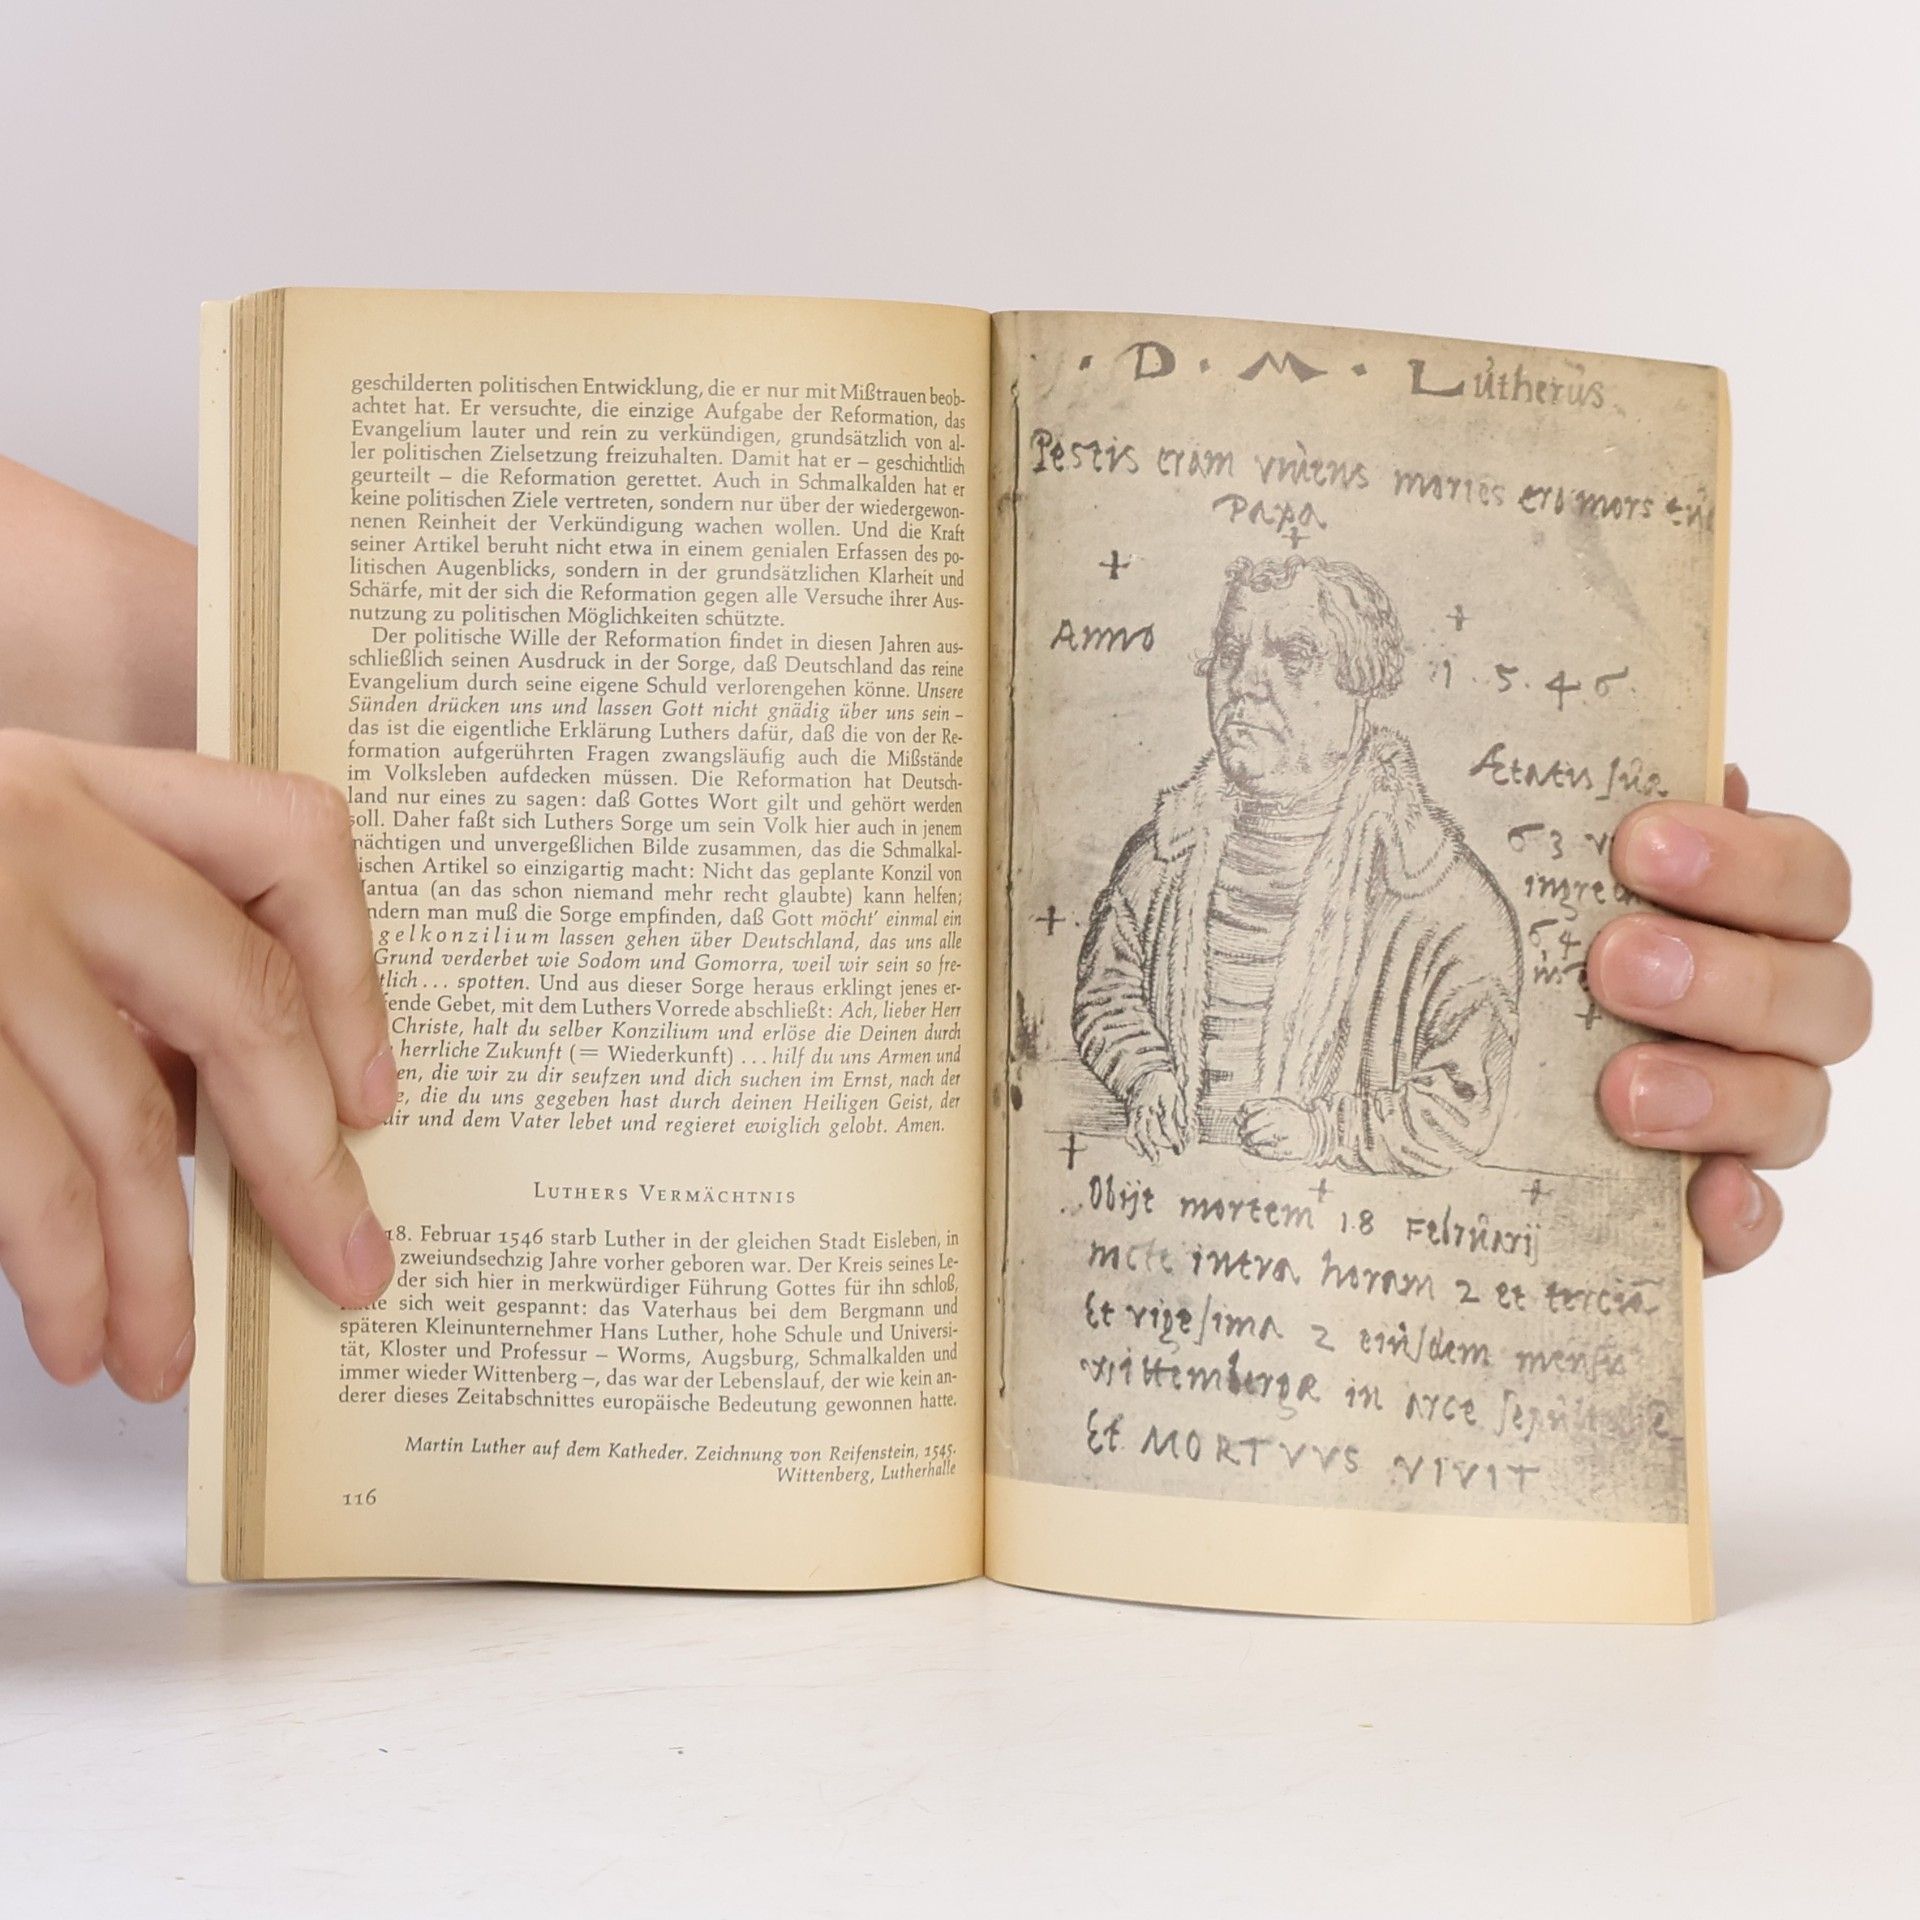 geschilderten politischen Entwicklung, die er nur mit Mißtrauen beob-
achtet hat. Er versuchte, die einzige Aufgabe der Reformation, das
Evangelium lauter und rein zu verkündigen, grundsätzlich von al-
ler politischen Zielsetzung freizuhalten. Damit hat er – geschichtlich
geurteilt – die Reformation gerettet. Auch in Schmalkalden hat er
keine politischen Ziele vertreten, sondern nur über der wiedergewon-
nenen Reinheit der Verkündigung wachen wollen. Und die Kraft
seiner Artikel beruht nicht etwa in einem genialen Erfassen des po-
litischen Augenblicks, sondern in der grundsätzlichen Klarheit und
Schärfe, mit der sich die Reformation gegen alle Versuche ihrer Aus-
nutzung zu politischen Möglichkeiten schützte.
Der politische Wille der Reformation findet in diesen Jahren aus-
schließlich seinen Ausdruck in der Sorge, daß Deutschland das reine
Evangelium durch seine eigene Schuld verlorengehen könne. Unsere
Sünden drücken uns und lassen Gott nicht gnädig über uns sein –
das ist die eigentliche Erklärung Luthers dafür, daß die von der Re-
formation aufgerührten Fragen zwangsläufig auch die Mißstände
im Volksleben aufdecken müssen. Die Reformation hat Deutsch-
land nur eines zu sagen: daß Gottes Wort gilt und gehört werden
soll. Daher faßt sich Luthers Sorge um sein Volk hier auch in jenem
mächtigen und unvergeßlichen Bilde zusammen, das die Schmalkal-
ischen Artikel so einzigartig macht: Nicht das geplante Konzil von
Mantua (an das schon niemand mehr recht glaubte) kann helfen;
ndern man muß die Sorge empfinden, daß Gott möcht' einmal ein
gelkonzilium lassen gehen über Deutschland, das uns alle
Grund verderbet wie Sodom und Gomorra, weil wir sein so fre-
tlich... spotten. Und aus dieser Sorge heraus erklingt jenes er-
fende Gebet, mit dem Luthers Vorrede abschließt: Ach, lieber Herr
Christe, halt du selber Konzilium und erlöse die Deinen durch
herrliche Zukunft (= Wiederkunft) ... hilf du uns Armen und
en, die wir zu dir seufzen und dich suchen im Ernst, nach der
e, die du uns gegeben hast durch deinen Heiligen Geist, der
dir und dem Vater lebet und regieret ewiglich gelobt. Amen.
LUTHERS VERMÄCHTNIS
18. Februar 1546 starb Luther in der gleichen Stadt Eisleben, in
zweiundsechzig Jahre vorher geboren war. Der Kreis seines Le-
der sich hier in merkwürdiger Führung Gottes für ihn schloß,
sich weit gespannt: das Vaterhaus bei dem Bergmann und
späteren Kleinunternehmer Hans Luther, hohe Schule und Universi-
tät, Kloster und Professur – Worms, Augsburg, Schmalkalden und
immer wieder Wittenberg –, das war der Lebenslauf, der wie kein an-
derer dieses Zeitabschnittes europäische Bedeutung gewonnen hatte.
Martin Luther auf dem Katheder. Zeichnung von Reifenstein, 1545.
Wittenberg, Lutherhalle
116
· D · M · Lutherus
Pestis eram viuens moriens ero mors
Papa
Anno
1 . 5 . 4 6 .
Ætatis sua
63
Obijt mortem 18 Februarij
nocte intra horam 2 et terciā
Et vigesima 2 eiusdem mensis
Wittemberge in arce
Et MORTVVS VIVIT